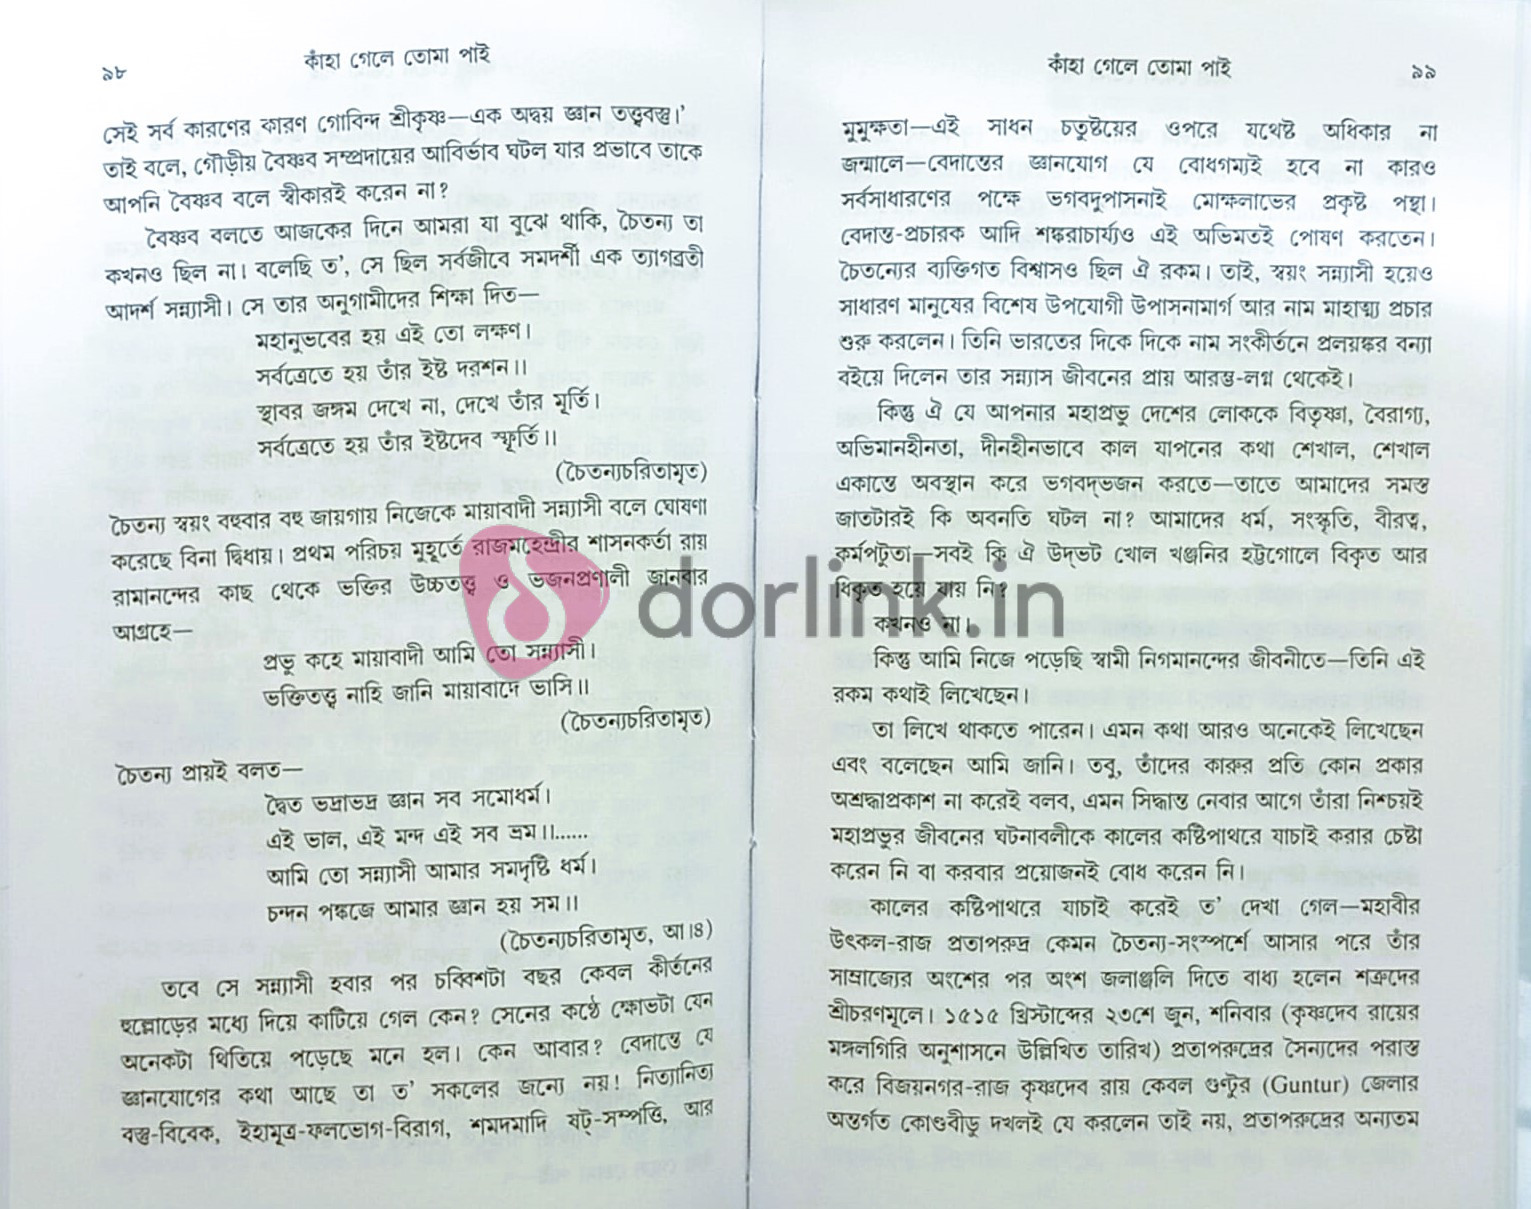 ৯৮
কাঁহা গেলে তোমা পাই
সেই সর্ব কারণের কারণ গোবিন্দ শ্রীকৃষ্ণ—এক অদ্বয় জ্ঞান তত্ত্ববস্তু।’
তাই বলে, গৌড়ীয় বৈষ্ণব সম্প্রদায়ের আবির্ভাব ঘটল যার প্রভাবে তাকে
আপনি বৈষ্ণব বলে স্বীকারই করেন না?
বৈষ্ণব বলতে আজকের দিনে আমরা যা বুঝে থাকি, চৈতন্য তা
কখনও ছিল না। বলেছি ত’, সে ছিল সর্বজীবে সমদর্শী এক ত্যাগব্রতী
আদর্শ সন্ন্যাসী। সে তার অনুগামীদের শিক্ষা দিত—
মহানুভবের হয় এই তো লক্ষণ।
সর্বত্রেতে হয় তাঁর ইষ্ট দরশন।।
স্থাবর জঙ্গম দেখে না, দেখে তাঁর মূর্তি।
সর্বত্রেতে হয় তাঁর ইষ্টদেব স্ফূর্তি।।
(চৈতন্যচরিতামৃত)
চৈতন্য স্বয়ং বহুবার বহু জায়গায় নিজেকে মায়াবাদী সন্ন্যাসী বলে ঘোষণা
করেছে বিনা দ্বিধায়। প্রথম পরিচয় মুহূর্তে রাজমহেন্দ্রীর শাসনকর্তা রায়
রামানন্দের কাছ থেকে ভক্তির উচ্চতত্ত্ব ও ভজনপ্রণালী জানবার
আগ্রহে—
প্রভু কহে মায়াবাদী আমি তো সন্ন্যাসী।
ভক্তিতত্ত্ব নাহি জানি মায়াবাদে ভাসি।।
(চৈতন্যচরিতামৃত)
চৈতন্য প্রায়ই বলত—
দ্বৈত ভদ্রাভদ্র জ্ঞান সব সমোধর্ম।
এই ভাল, এই মন্দ এই সব ভ্রম।।......
আমি তো সন্ন্যাসী আমার সমদৃষ্টি ধর্ম।
চন্দন পঙ্কজে আমার জ্ঞান হয় সম।।
(চৈতন্যচরিতামৃত, আ।৪)
তবে সে সন্ন্যাসী হবার পর চব্বিশটা বছর কেবল কীর্তনের
হুল্লোড়ের মধ্যে দিয়ে কাটিয়ে গেল কেন? সেনের কণ্ঠে ক্ষোভটা যেন
অনেকটা থিতিয়ে পড়েছে মনে হল। কেন আবার? বেদান্তে যে
জ্ঞানযোগের কথা আছে তা ত’ সকলের জন্যে নয়! নিত্যানিত্য
বস্তু-বিবেক, ইহামূত্র-ফলভোগ-বিরাগ, শমদমাদি ষট্-সম্পত্তি, আর
কাঁহা গেলে তোমা পাই
৯৯
মুমুক্ষতা—এই সাধন চতুষ্টয়ের ওপরে যথেষ্ট অধিকার না
জন্মালে—বেদান্তের জ্ঞানযোগ যে বোধগম্যই হবে না কারও
সর্বসাধারণের পক্ষে ভগবদুপাসনাই মোক্ষলাভের প্রকৃষ্ট পন্থা।
বেদান্ত-প্রচারক আদি শঙ্করাচার্য্যও এই অভিমতই পোষণ করতেন।
চৈতন্যের ব্যক্তিগত বিশ্বাসও ছিল ঐ রকম। তাই, স্বয়ং সন্ন্যাসী হয়েও
সাধারণ মানুষের বিশেষ উপযোগী উপাসনামার্গ আর নাম মাহাত্ম্য প্রচার
শুরু করলেন। তিনি ভারতের দিকে দিকে নাম সংকীর্তনে প্রলয়ঙ্কর বন্যা
বইয়ে দিলেন তার সন্ন্যাস জীবনের প্রায় আরম্ভ-লগ্ন থেকেই।
কিন্তু ঐ যে আপনার মহাপ্রভু দেশের লোককে বিতৃষ্ণা, বৈরাগ্য,
অভিমানহীনতা, দীনহীনভাবে কাল যাপনের কথা শেখাল, শেখাল
একান্তে অবস্থান করে ভগবদ্ভজন করতে—তাতে আমাদের সমস্ত
জাতটারই কি অবনতি ঘটল না? আমাদের ধর্ম, সংস্কৃতি, বীরত্ব,
কর্মপটুতা—সবই কি ঐ উদ্ভট খোল খঞ্জনির হট্টগোলে বিকৃত আর
ধিকৃত হয়ে যায় নি?
কখনও না।
কিন্তু আমি নিজে পড়েছি স্বামী নিগমানন্দের জীবনীতে—তিনি এই
রকম কথাই লিখেছেন।
তা লিখে থাকতে পারেন। এমন কথা আরও অনেকেই লিখেছেন
এবং বলেছেন আমি জানি। তবু, তাঁদের কারুর প্রতি কোন প্রকার
অশ্রদ্ধাপ্রকাশ না করেই বলব, এমন সিদ্ধান্ত নেবার আগে তাঁরা নিশ্চয়ই
মহাপ্রভুর জীবনের ঘটনাবলীকে কালের কষ্টিপাথরে যাচাই করার চেষ্টা
করেন নি বা করবার প্রয়োজনই বোধ করেন নি।
কালের কষ্টিপাথরে যাচাই করেই ত’ দেখা গেল—মহাবীর
উৎকল-রাজ প্রতাপরুদ্র কেমন চৈতন্য-সংস্পর্শে আসার পরে তাঁর
সাম্রাজ্যের অংশের পর অংশ জলাঞ্জলি দিতে বাধ্য হলেন শত্রুদের
শ্রীচরণমূলে। ১৫১৫ খ্রিস্টাব্দের ২৩শে জুন, শনিবার (কৃষ্ণদেব রায়ের
মঙ্গলগিরি অনুশাসনে উল্লিখিত তারিখ) প্রতাপরুদ্রের সৈন্যদের পরাস্ত
করে বিজয়নগর-রাজ কৃষ্ণদেব রায় কেবল গুণ্টুর (Guntur) জেলার
অন্তর্গত কোণ্ডবীডু দখলই যে করলেন তাই নয়, প্রতাপরুদ্রের অন্যতম
dorlink.in